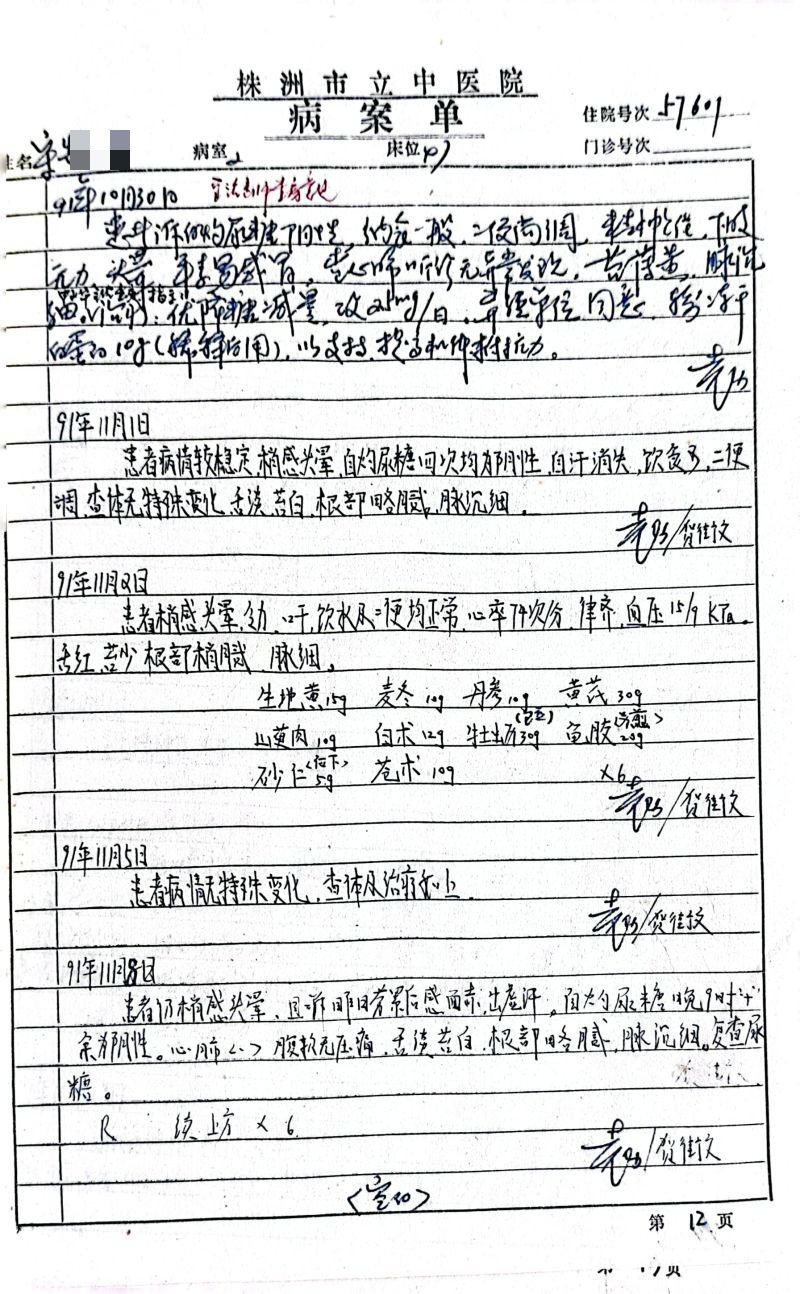 株洲市立中医院
病案单
住院号次 57601
门诊号次
姓名 病室 2 床位 47
91年10月30日
患者诉 尿糖阴性，纳食一般，二便尚调，
乏力，头晕，平素易感冒，查心肺听诊无异常发现，苔薄黄，脉沉
细， 优降糖减量，改2.5mg/日，并经单位同意，
白蛋白10g(稀释后用)，以支持，提高机体抵抗力。
91年11月1日
患者病情较稳定，稍感头晕，自灼尿糖四次均为阴性，自汗消失，饮食可，二便
调，查体无特殊变化，舌淡，苔白，根部略腻，脉沉细。
/贺佳文
91年11月2日
患者稍感头晕，乏力，口干，饮水及二便均正常，心率74次/分，律齐，血压15/9 KPa。
舌红，苔少，根部稍腻，脉细。
生地黄15g 麦冬10g 丹参10g 黄芪30g
山萸肉10g 白术12g 牡蛎30g 龟胶20g
砂仁(后下)5g 苍术10g ×6
/贺佳文
91年11月5日
患者病情无特殊变化，查体及治疗如上。
/贺佳文
91年11月8日
患者仍稍感头晕，且诉昨日劳累后感面赤，出虚汗。自灼尿糖晚9时"+"
余为阴性。心肺<->腹软无压痛，舌淡苔白，根部略腻，脉沉细。复查尿
糖。
R 续上方×6
/贺佳文
第 12 页